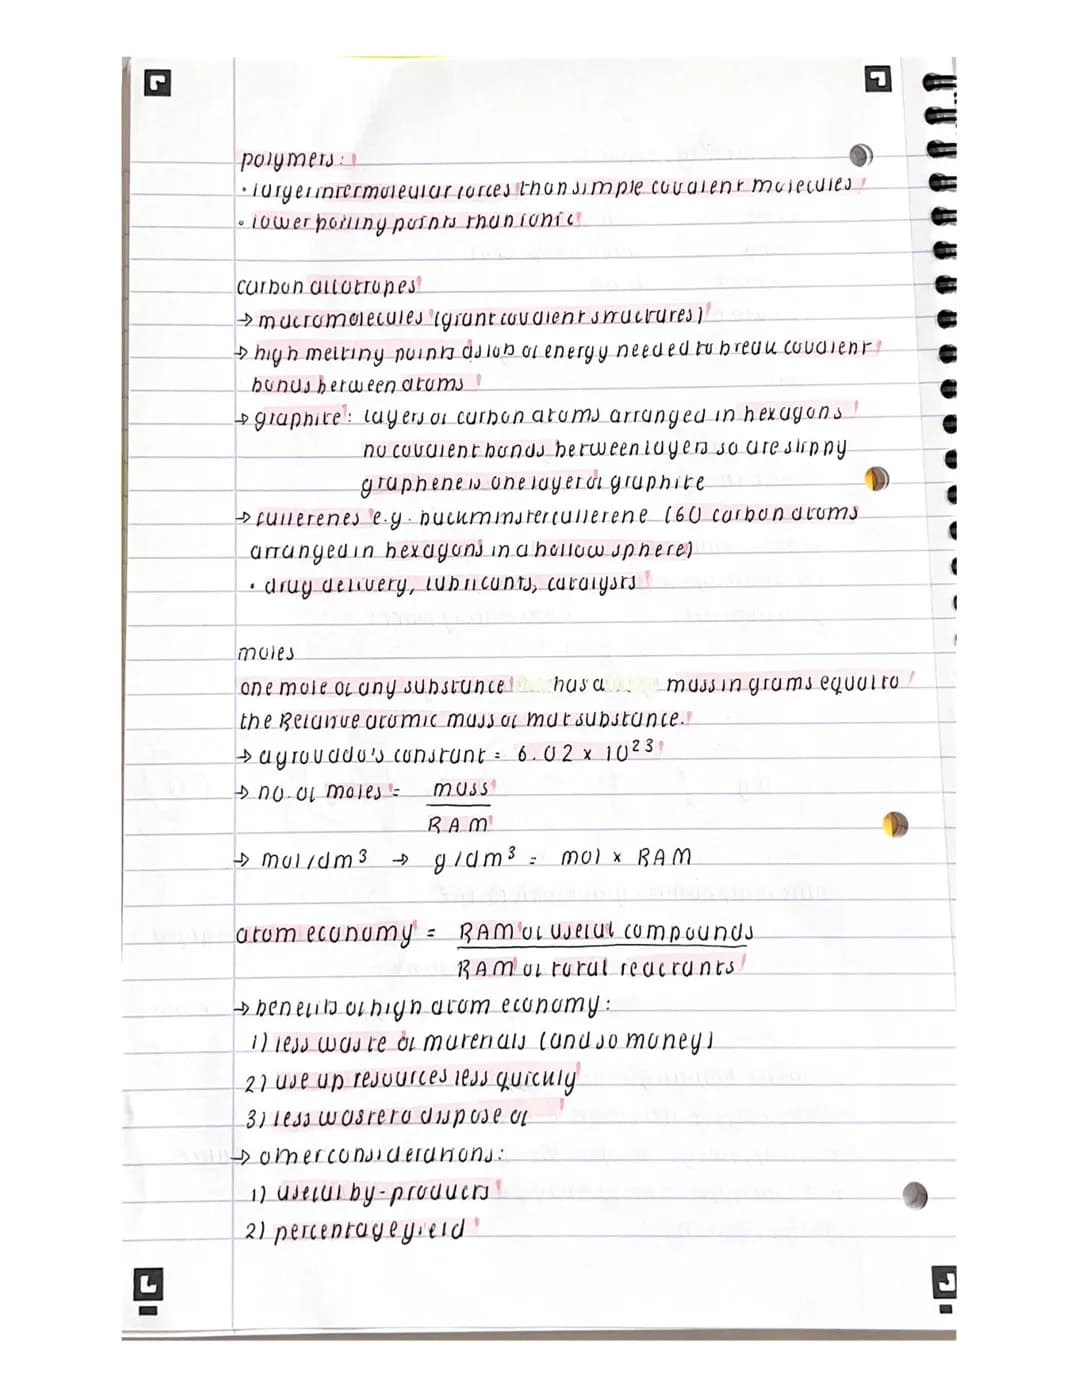 polymers:
• larger intermolecular forces than simple covalent molecules
• lower boiling points than ionic
carbon allotropes
→ macromolecules (giant covalent structures)
→ high melting points as lots of energy needed to break covalent
bonds between atoms
→ graphite: layers of carbon atoms arranged in hexagons
no covalent bonds between layers so are slippy
graphene is one layer of graphite
→ fullerenes e.g. buckminsterfullerene (60 carbon atoms
arranged in hexagons in a hollow sphere)
• drug delivery, lubricants, catalysts
moles
one mole of any substance has a mass in grams equal to
the Relative atomic mass of that substance.
→ agrovado's constant = 6.02 x 10²³
→ no. of moles = mass
RAM
→ mol/dm³ → g/dm³ = mol x RAM
atom economy = RAM of useful compounds
RAM of total reactants
→ benefits of high atom economy:
1) less waste of materials (and so money)
2) use up resources less quickly
3) less waste to dispose of
→ other considerations:
1) useful by-products
2) percentage yield